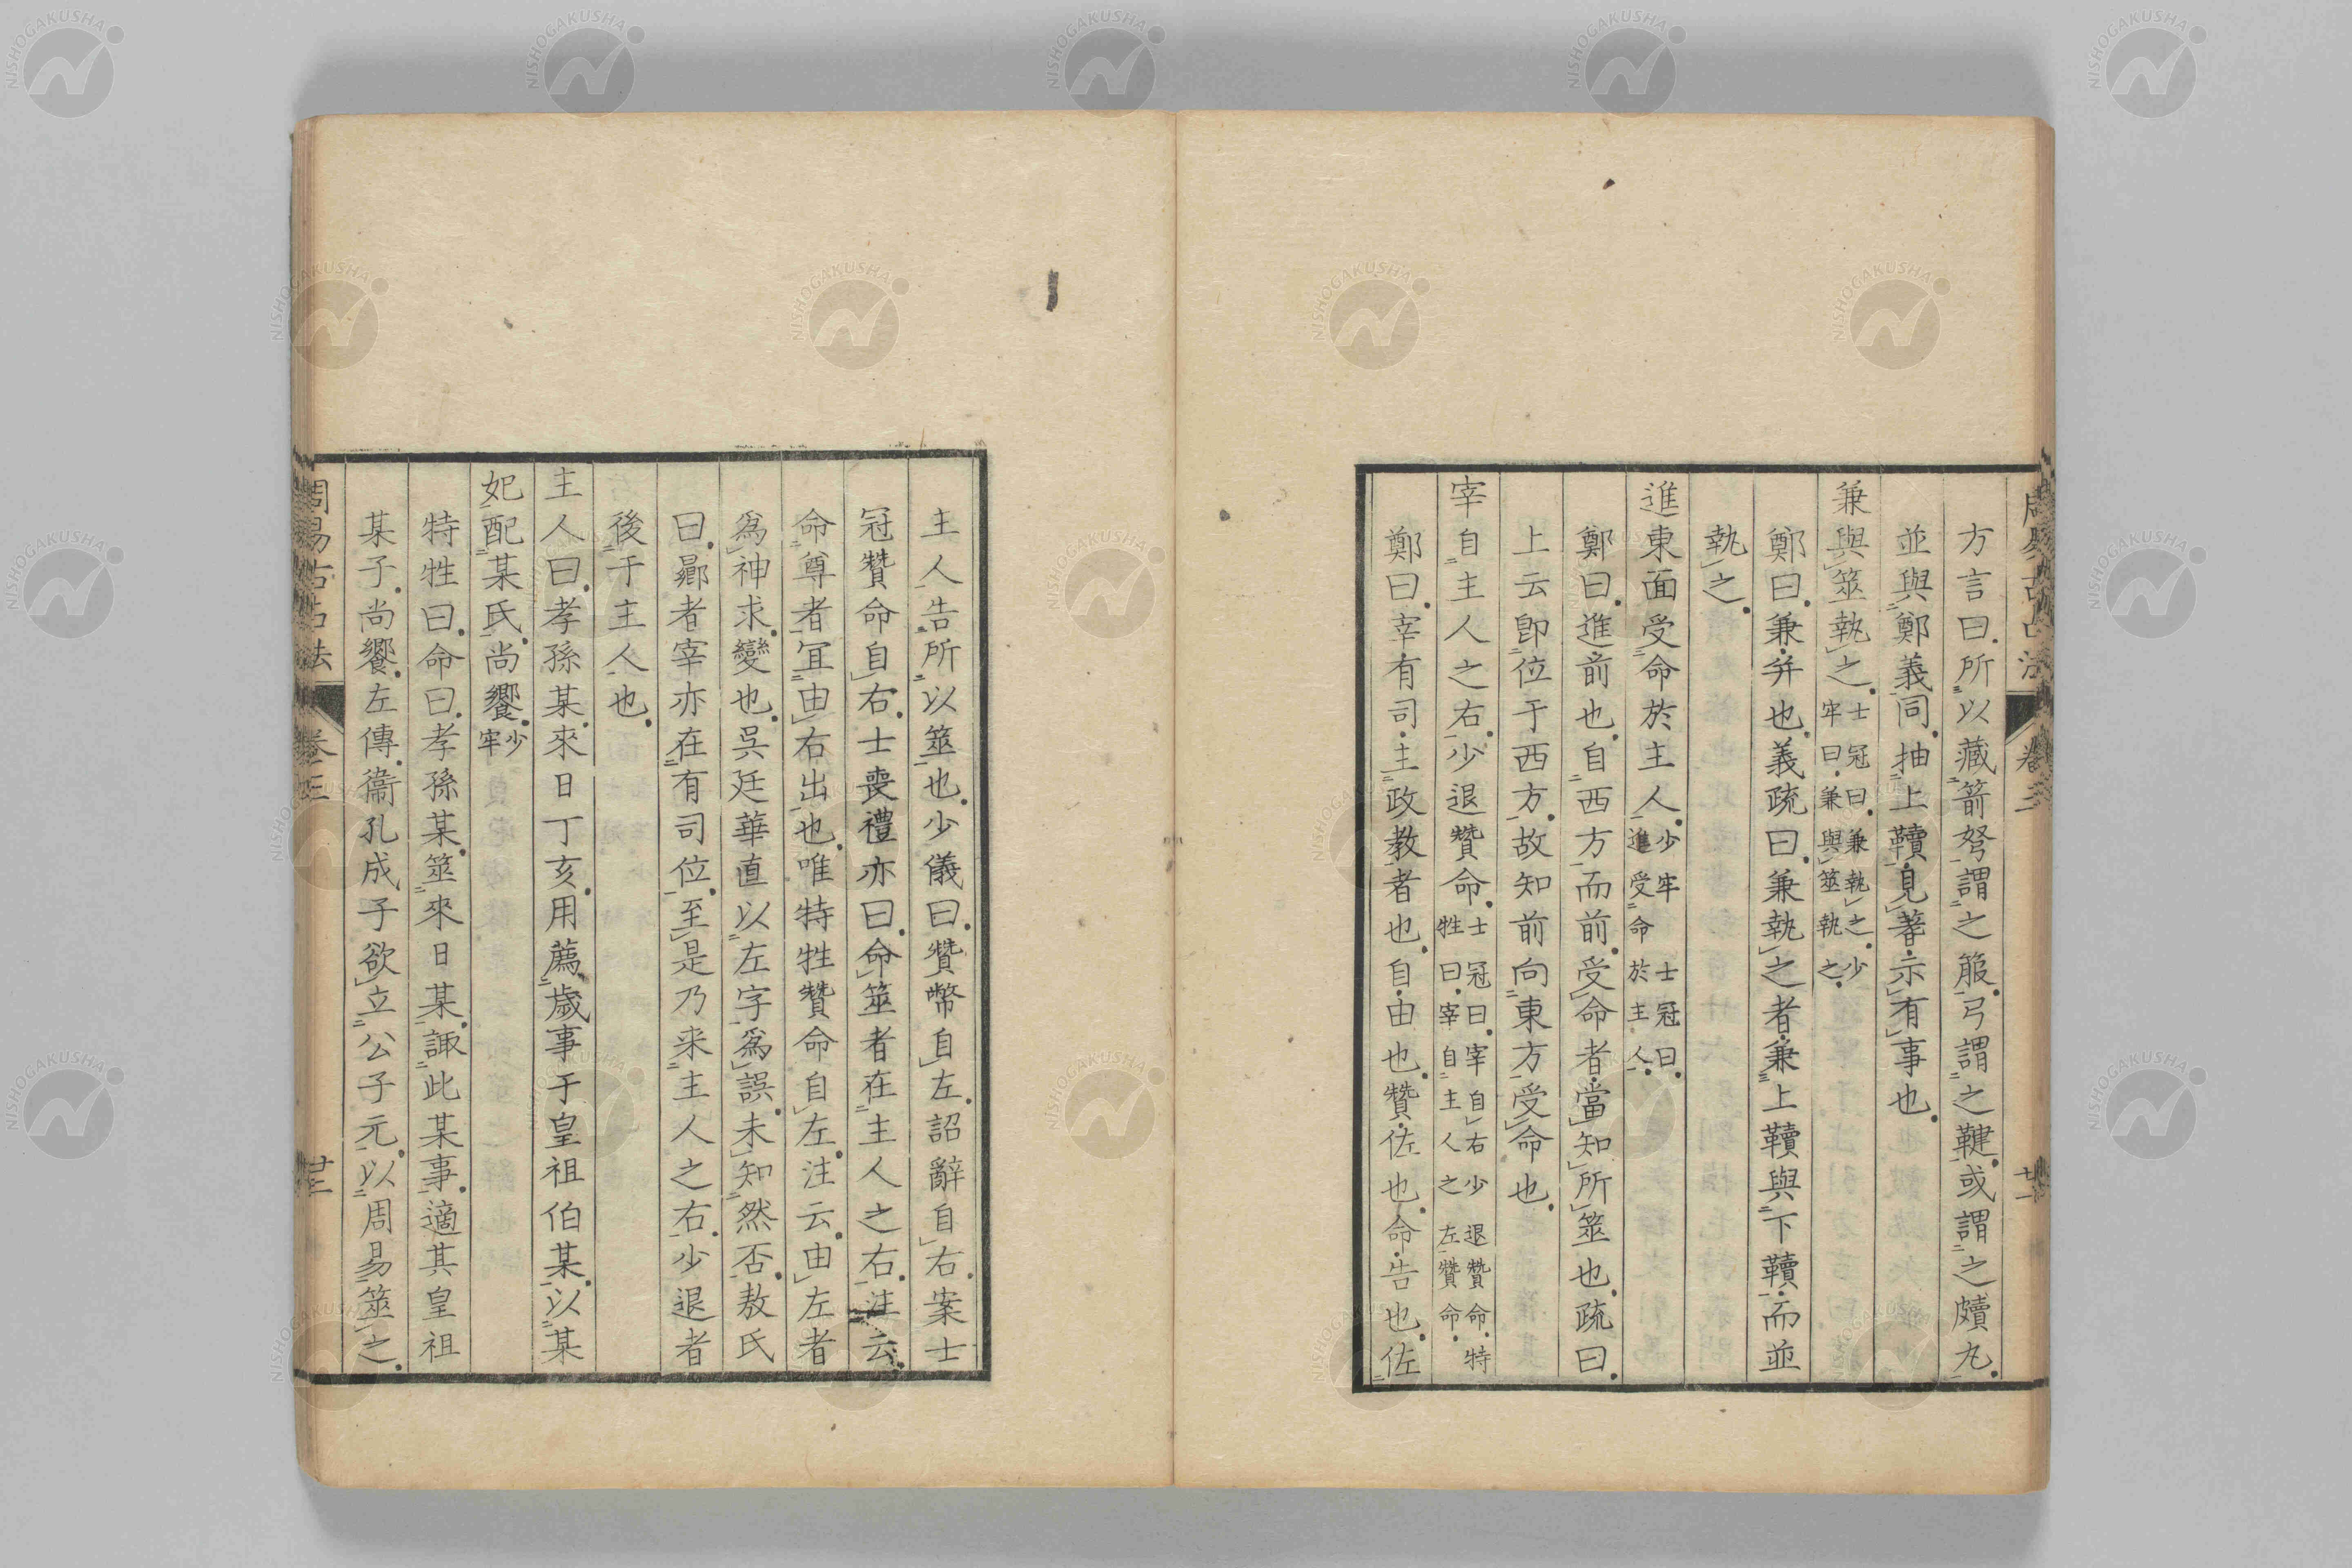 方言曰所以藏箭弩謂之箙弓謂之鞬或謂之贖丸
並與鄭義同抽上韇見蓍示有事也
兼與筮執之士冠曰兼執之少牢曰兼與筮執之
鄭曰兼并也義疏曰兼執之者兼上韇與下韇而並
執之
進東面受命於主人少牢進受命士冠曰於主人
鄭曰進前也自西方而前受命者當知所筮也疏曰
上云卽位于西方故知前向東方受命也
宰自主人之右少退贊命士冠曰宰自右少退贊命特牲曰宰自主人之左贊命
鄭曰宰有司主政教者也自由也贊佐也命告也佐
主人告所以筮也少儀曰贊幣自左詔辭自右案士
冠贊命自右士喪禮亦曰命筮者在主人之右注云
命尊者宜由右出也唯特牲贊命自左注云由左者
爲神求變也吳廷華直以左字爲誤未知然否敖氏
曰曏者宰亦在有司位至是乃來主人之右少退者
後于主人也
主人曰孝孫某來日丁亥用薦歲事于皇祖伯某以某
妃配某氏尚饗少牢
特牲曰命曰孝孫某筮來日某諏此某事適其皇祖
某子尚饗左傳衞孔成子欲立公子元以周易筮之
周易古占法 卷三